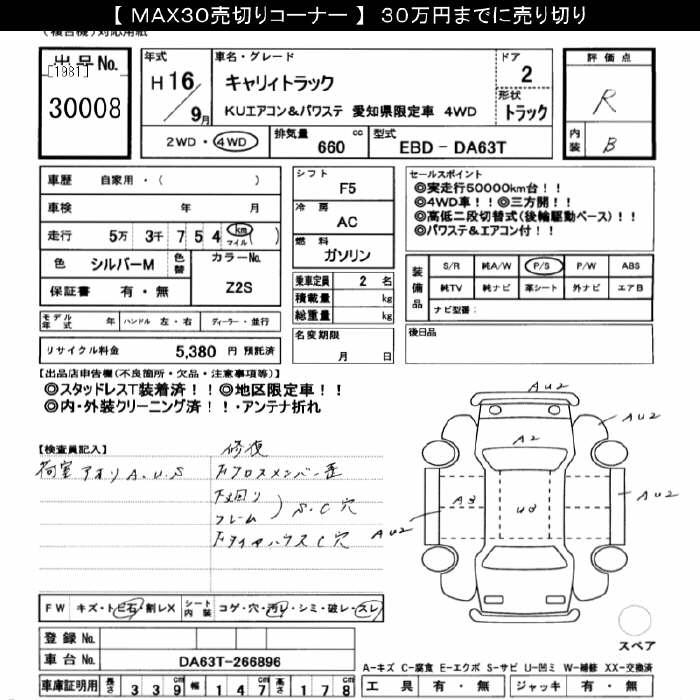 【 MAX30売切りコーナー 】 30万円までに売り切り
(複合機)対応用紙
出品No.
[1981]
30008
年式
H 16 / 9月
車名・グレード
キャリィトラック
KUエアコン&パワステ 愛知県限定車 4WD
ドア
2
形状
トラック
2WD・4WD
排気量 660 cc
型式 EBD - DA63T
評価点
R
内装 B
車歴 自家用・( )
車検 年 月
走行 5万 3千 7 5 4 km マイル ( )
色 シルバーM 色替
カラーNo. Z2S
保証書 有・無
モデル年式 年 ハンドル 左・右 ディーラー・並行
リサイクル料金 5,380 円 預託済
シフト
F5
冷房
AC
燃料
ガソリン
乗車定員 2 名
積載量 kg
総重量 kg
名変期限
月 日
セールスポイント
◎実走行50000km台!!
◎4WD車!!◎三方開!!
◎高低二段切替式(後輪駆動ベース)!!
◎パワステ&エアコン付!!
装備品
S/R 純A/W P/S P/W ABS
純TV 純ナビ 革シート 外ナビ エアB
ナビ型番:
後日品
【出品店申告欄(不良箇所・欠品・注意事項等)】
◎スタッドレスT装着済!!◎地区限定車!!
◎内・外装クリーニング済!!・アンテナ折れ
【検査員記入】
荷室アオリ A.U.S
修復
Fクロスメンバー歪
下廻り
フレーム
S・C穴
FタイヤハウスC穴
AU2
AU2
A2
A3
U3
AU2
AU2
FW キズ・トビ石・割レX
シート内装 コゲ・穴・汚レ・シミ・破レ・スレ
登録 No.
車台 No. DA63T-266896
車庫証明用 長さ 3 3 9 幅 1 4 7 高さ 1 7 8
スペア
A-キズ C-腐食 E-エクボ S-サビ U-凹ミ W-補修 XX-交換済
工具 有・無 ジャッキ 有・無